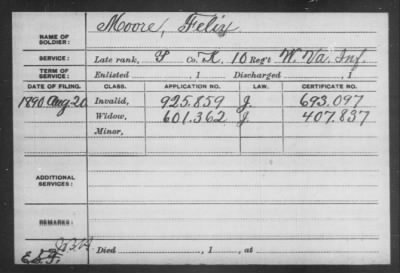 NAME OF SOLDIER: Moore, Felix
SERVICE: Late rank, P Co. K, 10 Reg't W. Va. Inf.
TERM OF SERVICE: Enlisted , 1 Discharged , 1
DATE OF FILING. CLASS. APPLICATION NO. LAW. CERTIFICATE NO.
1890 Aug. 20 Invalid, 925.859 J. 693.097
Widow, 601.362 J. 407.837
Minor,
ADDITIONAL SERVICES:
REMARKS:
Died , 1 , at